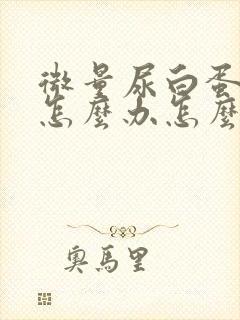 微量尿白蛋
怎麼办怎麼
奧馬里